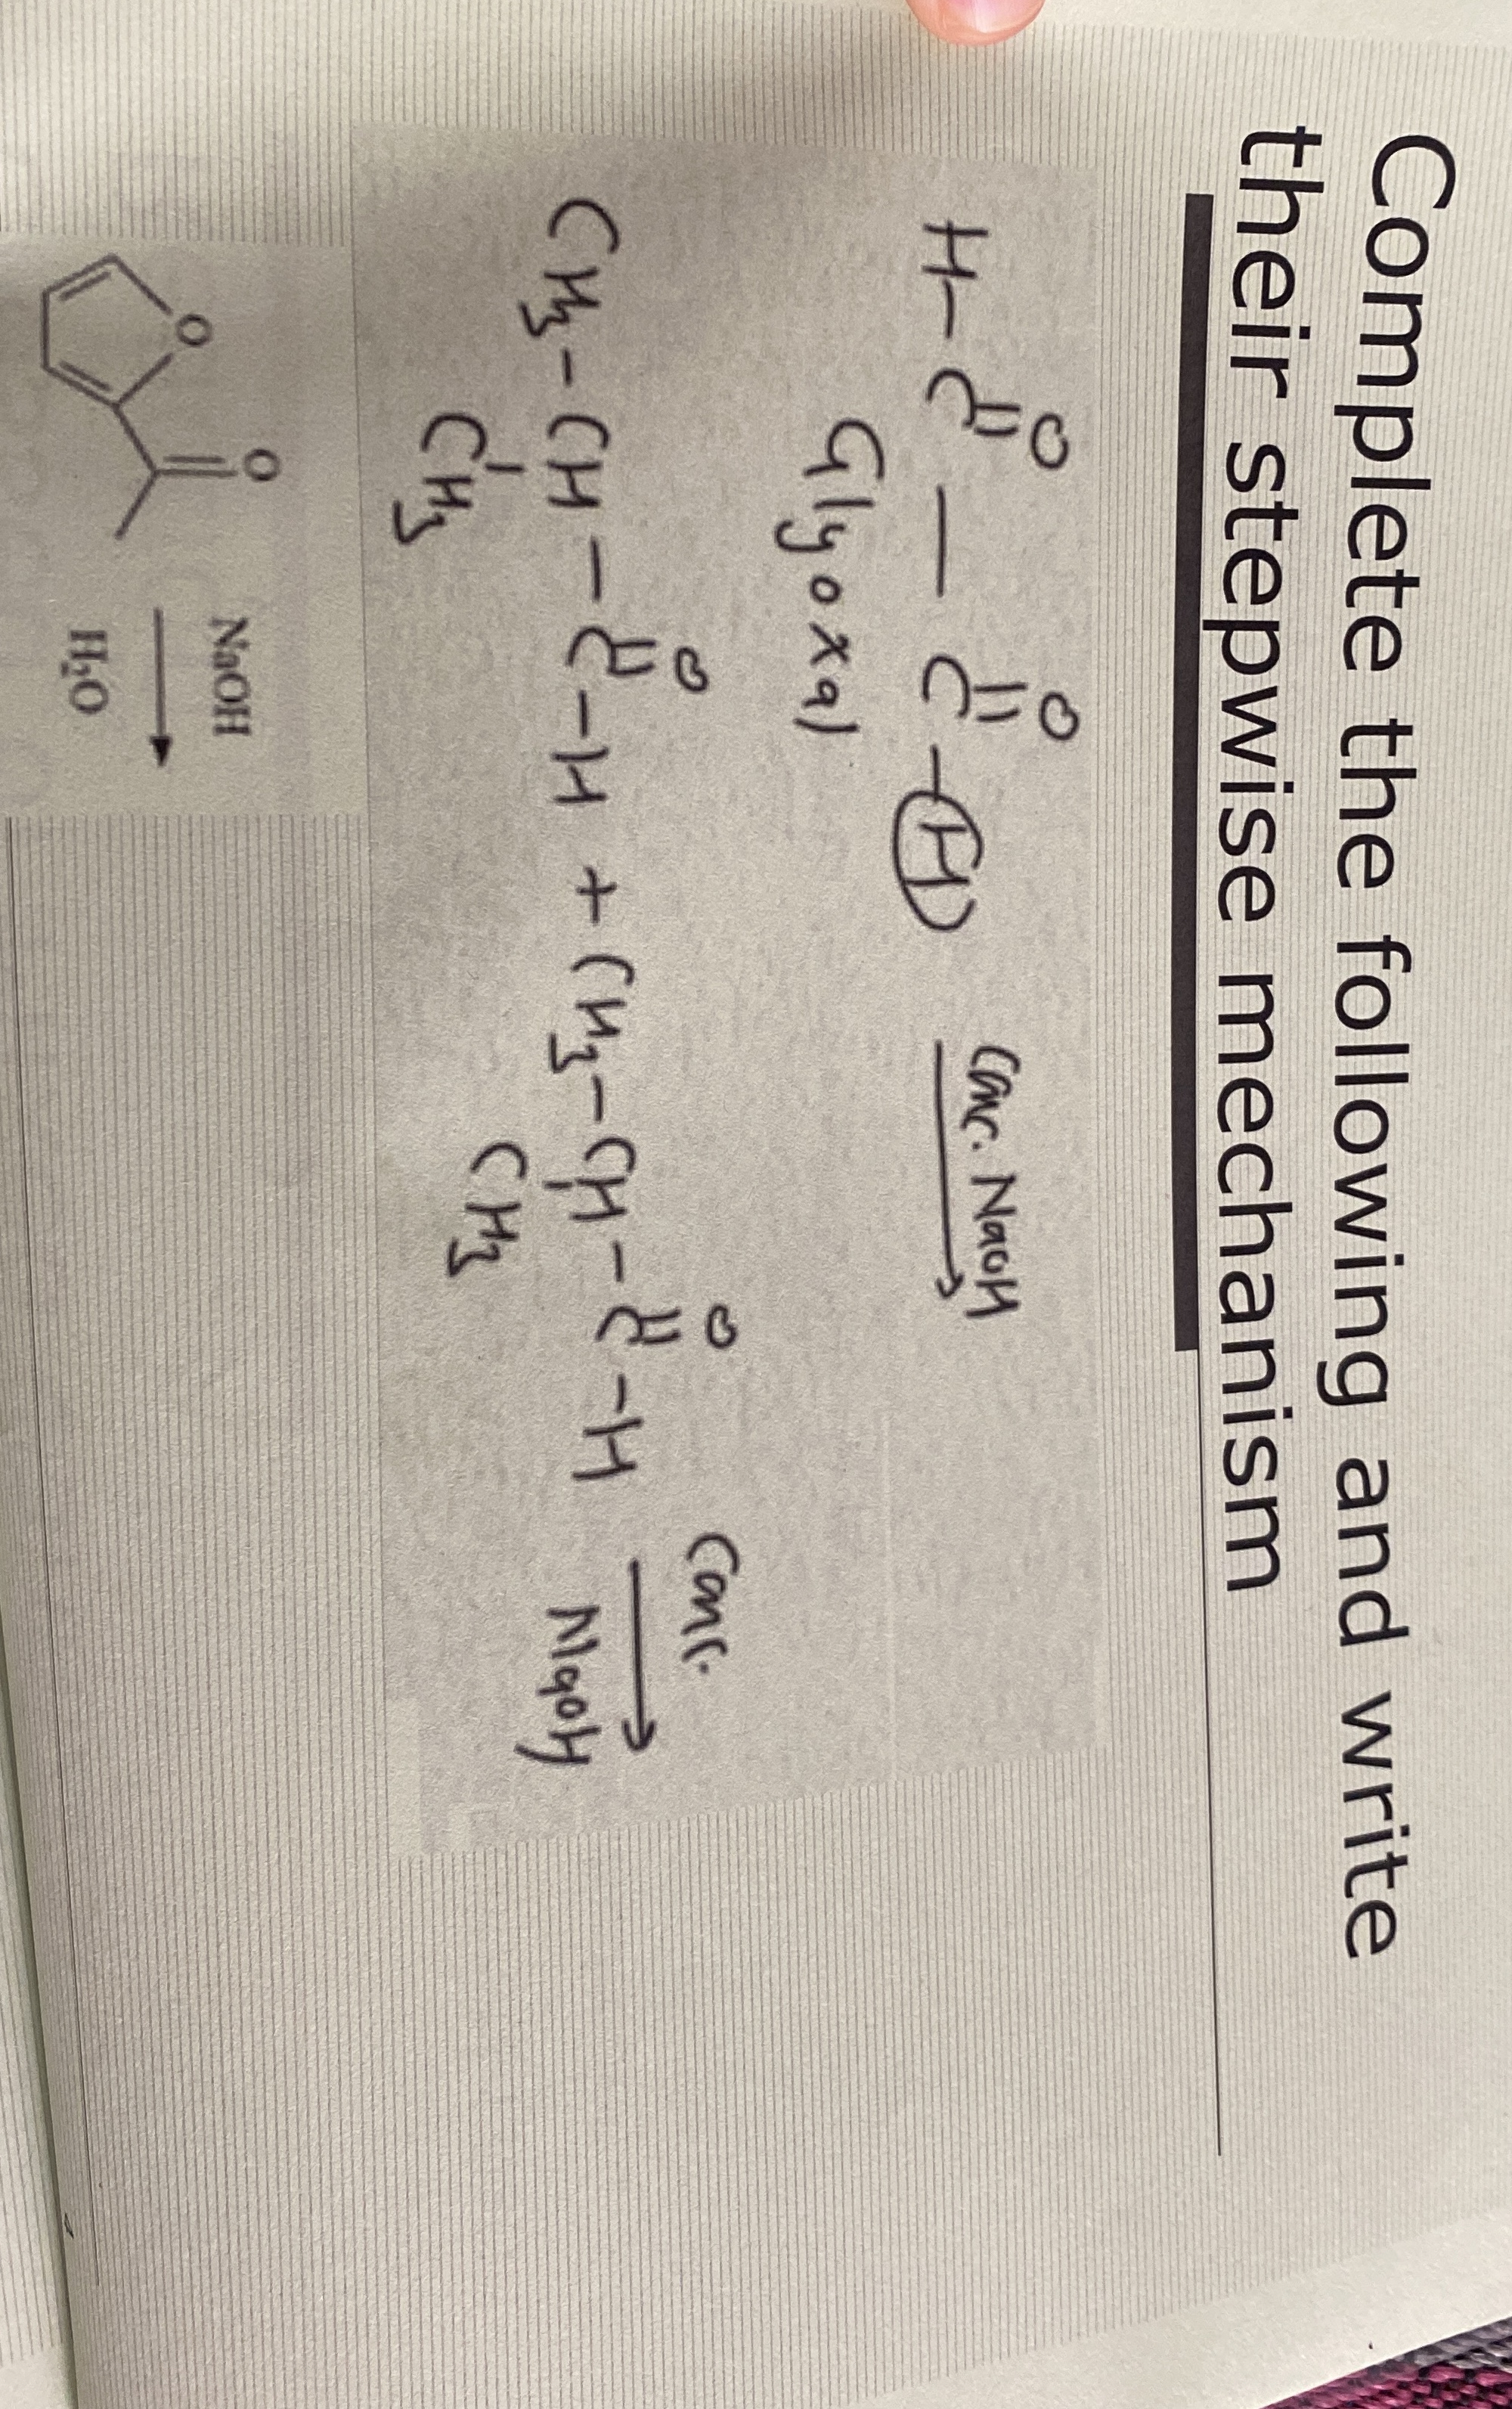 Complete the following and write
their stepwise mechanism
O O
H-C-C-H Conc. NaOH
Glyoxal
O O Conc.
CH3-CH-C-H + CH3-CH-C-H NaOH
CH3 CH3
O O NaOH
H2O